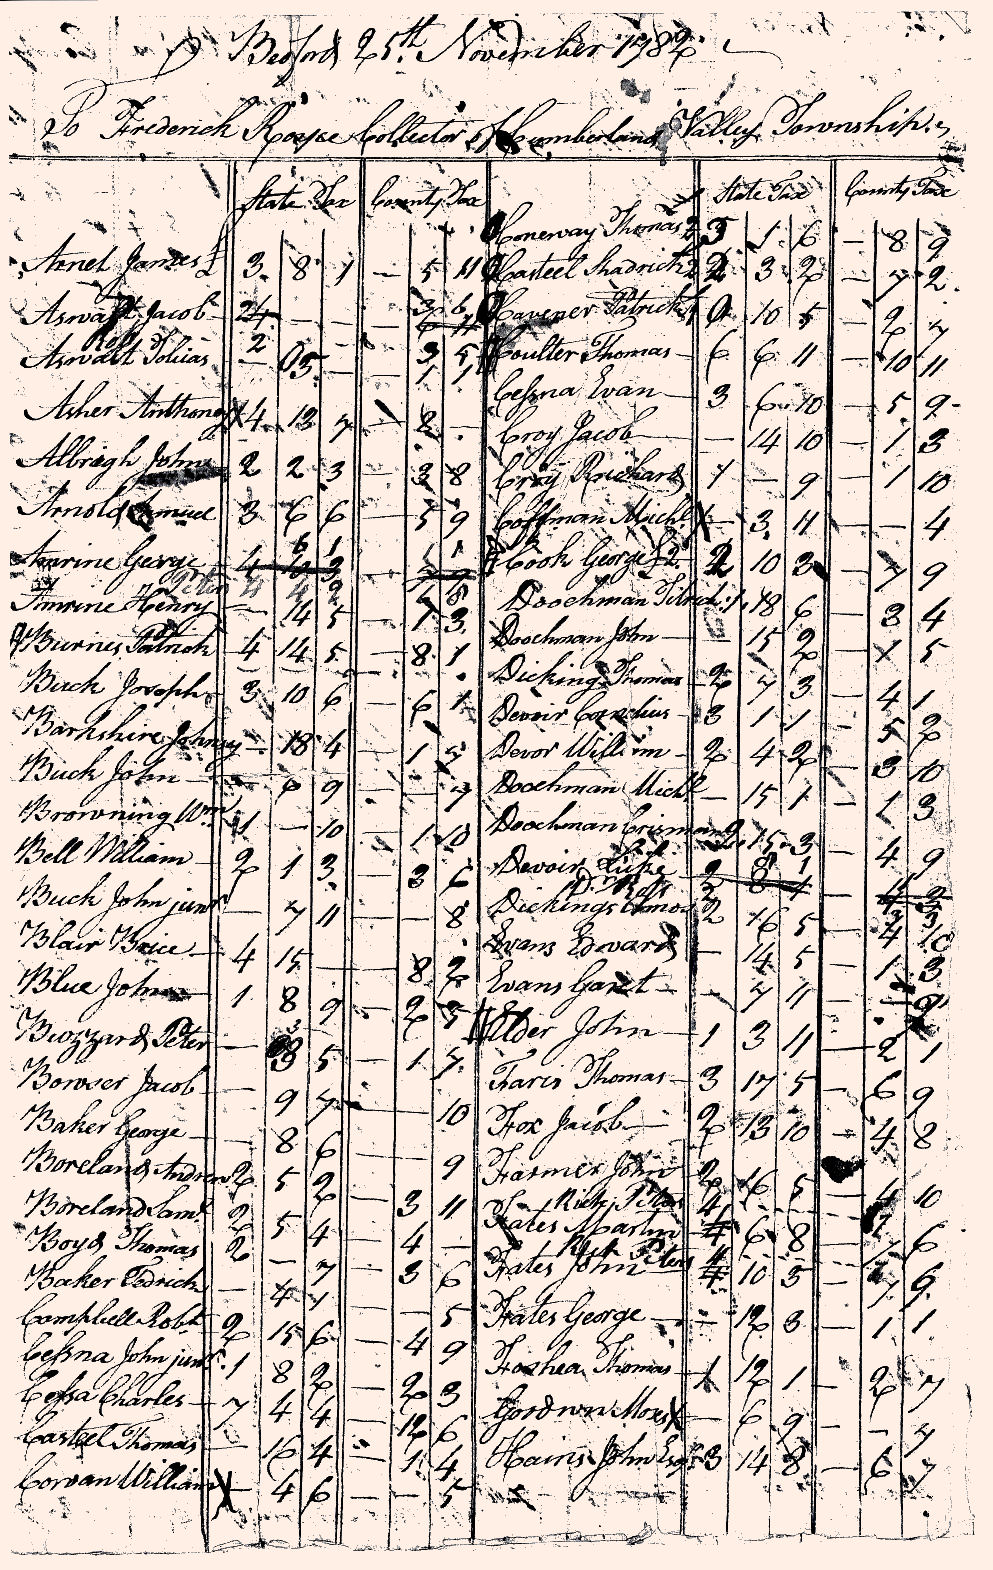 Bedford 25th November 1782
To Frederick Royce Collector of Cumberland Valley Township
State Tax County Tax
Arnel James 3 8 1 — 5 11
Aswalt Jacob
Aswalt Tobias
Asher Anthony 4 13 7 — 8 -
Albrigh John 2 2 3 — 3 8
Arnold Samuel 3 6 6 — 5 9
Amrine George
Amrine Henry — 14 5 — 1 3
Burnes Patrick 4 14 5 — 8 1
Buck Joseph 3 10 6 — 6 1
Barkshire Johney — 18 4 — 1 7
Buck John — 6 9 — — 7
Browning Wm 1 — 10 — 1 10
Bell William 2 1 3 — 3 6
Buck John junr — 7 11 — — 8
Blair Brice 4 15 — — 8 2
Blue John 1 8 9 — 2 5
Buzzard Peter — 5 — 1 7
Bowser Jacob — 9 7 — — 10
Baker George — 8 6 — — 9
Boreland Andrew 2 5 2 — 3 11
Boreland Saml 2 5 4 — 4 —
Boyd Thomas 2 — 7 — 3 6
Baker Fedrich — 4 7 — — 5
Campbell Robt 2 15 6 — 4 9
Ceßna John junr 1 8 2 — 2 3
Ceßna Charles 7 4 4 — 12 6
Casteel Thomas — 16 4 — 1 4
Corvan William — 4 6 — — 5
State Tax County Tax
Coneway Thomas 3 1 6 — 8 9
Casteel Shadrick 2 3 2 — 7 2
Cavener Patrick 10 5 — 2 7
Coulter Thomas 6 6 11 — 10 11
Ceßna Evan 3 6 10 — 5 9
Croy Jacob — 14 10 — 1 3
Croy Richard 1 — 9 — 1 10
Coffman Michl — 3 11 — — 4
Cook George 2 10 3 — 7 9
Doochman 18 6 3 4
Doochman John — 15 2 — 1 5
Dicking Thomas 2 7 3 — 4 1
Devoir Cornelius 3 1 1 — 5 2
Devor William 2 4 2 — 3 10
Doochman Michl — 15 1 — 1 3
Doochman 2 15 3 — 4 9
Devoir Luke
Dickings Amos 2 16 5 — 4 10
Evans Edward — 14 5 — 1 3
Evans Garet — 7 11 — — 9
Elder John 1 3 11 — 2 1
Faris Thomas 3 17 5 — 6 9
Fox Jacob 2 13 10 — 4 8
Farmer John 2 16 5 — 4 10
Fates Martin 6 8 6
Fates John 10 5 — 7 9
Fates George — 12 3 — 1 1
Foshea Thomas 1 12 1 — 2 7
Gordwin Moses — 6 9 — — 7
Hains John Esqr 3 14 8 — 6 7